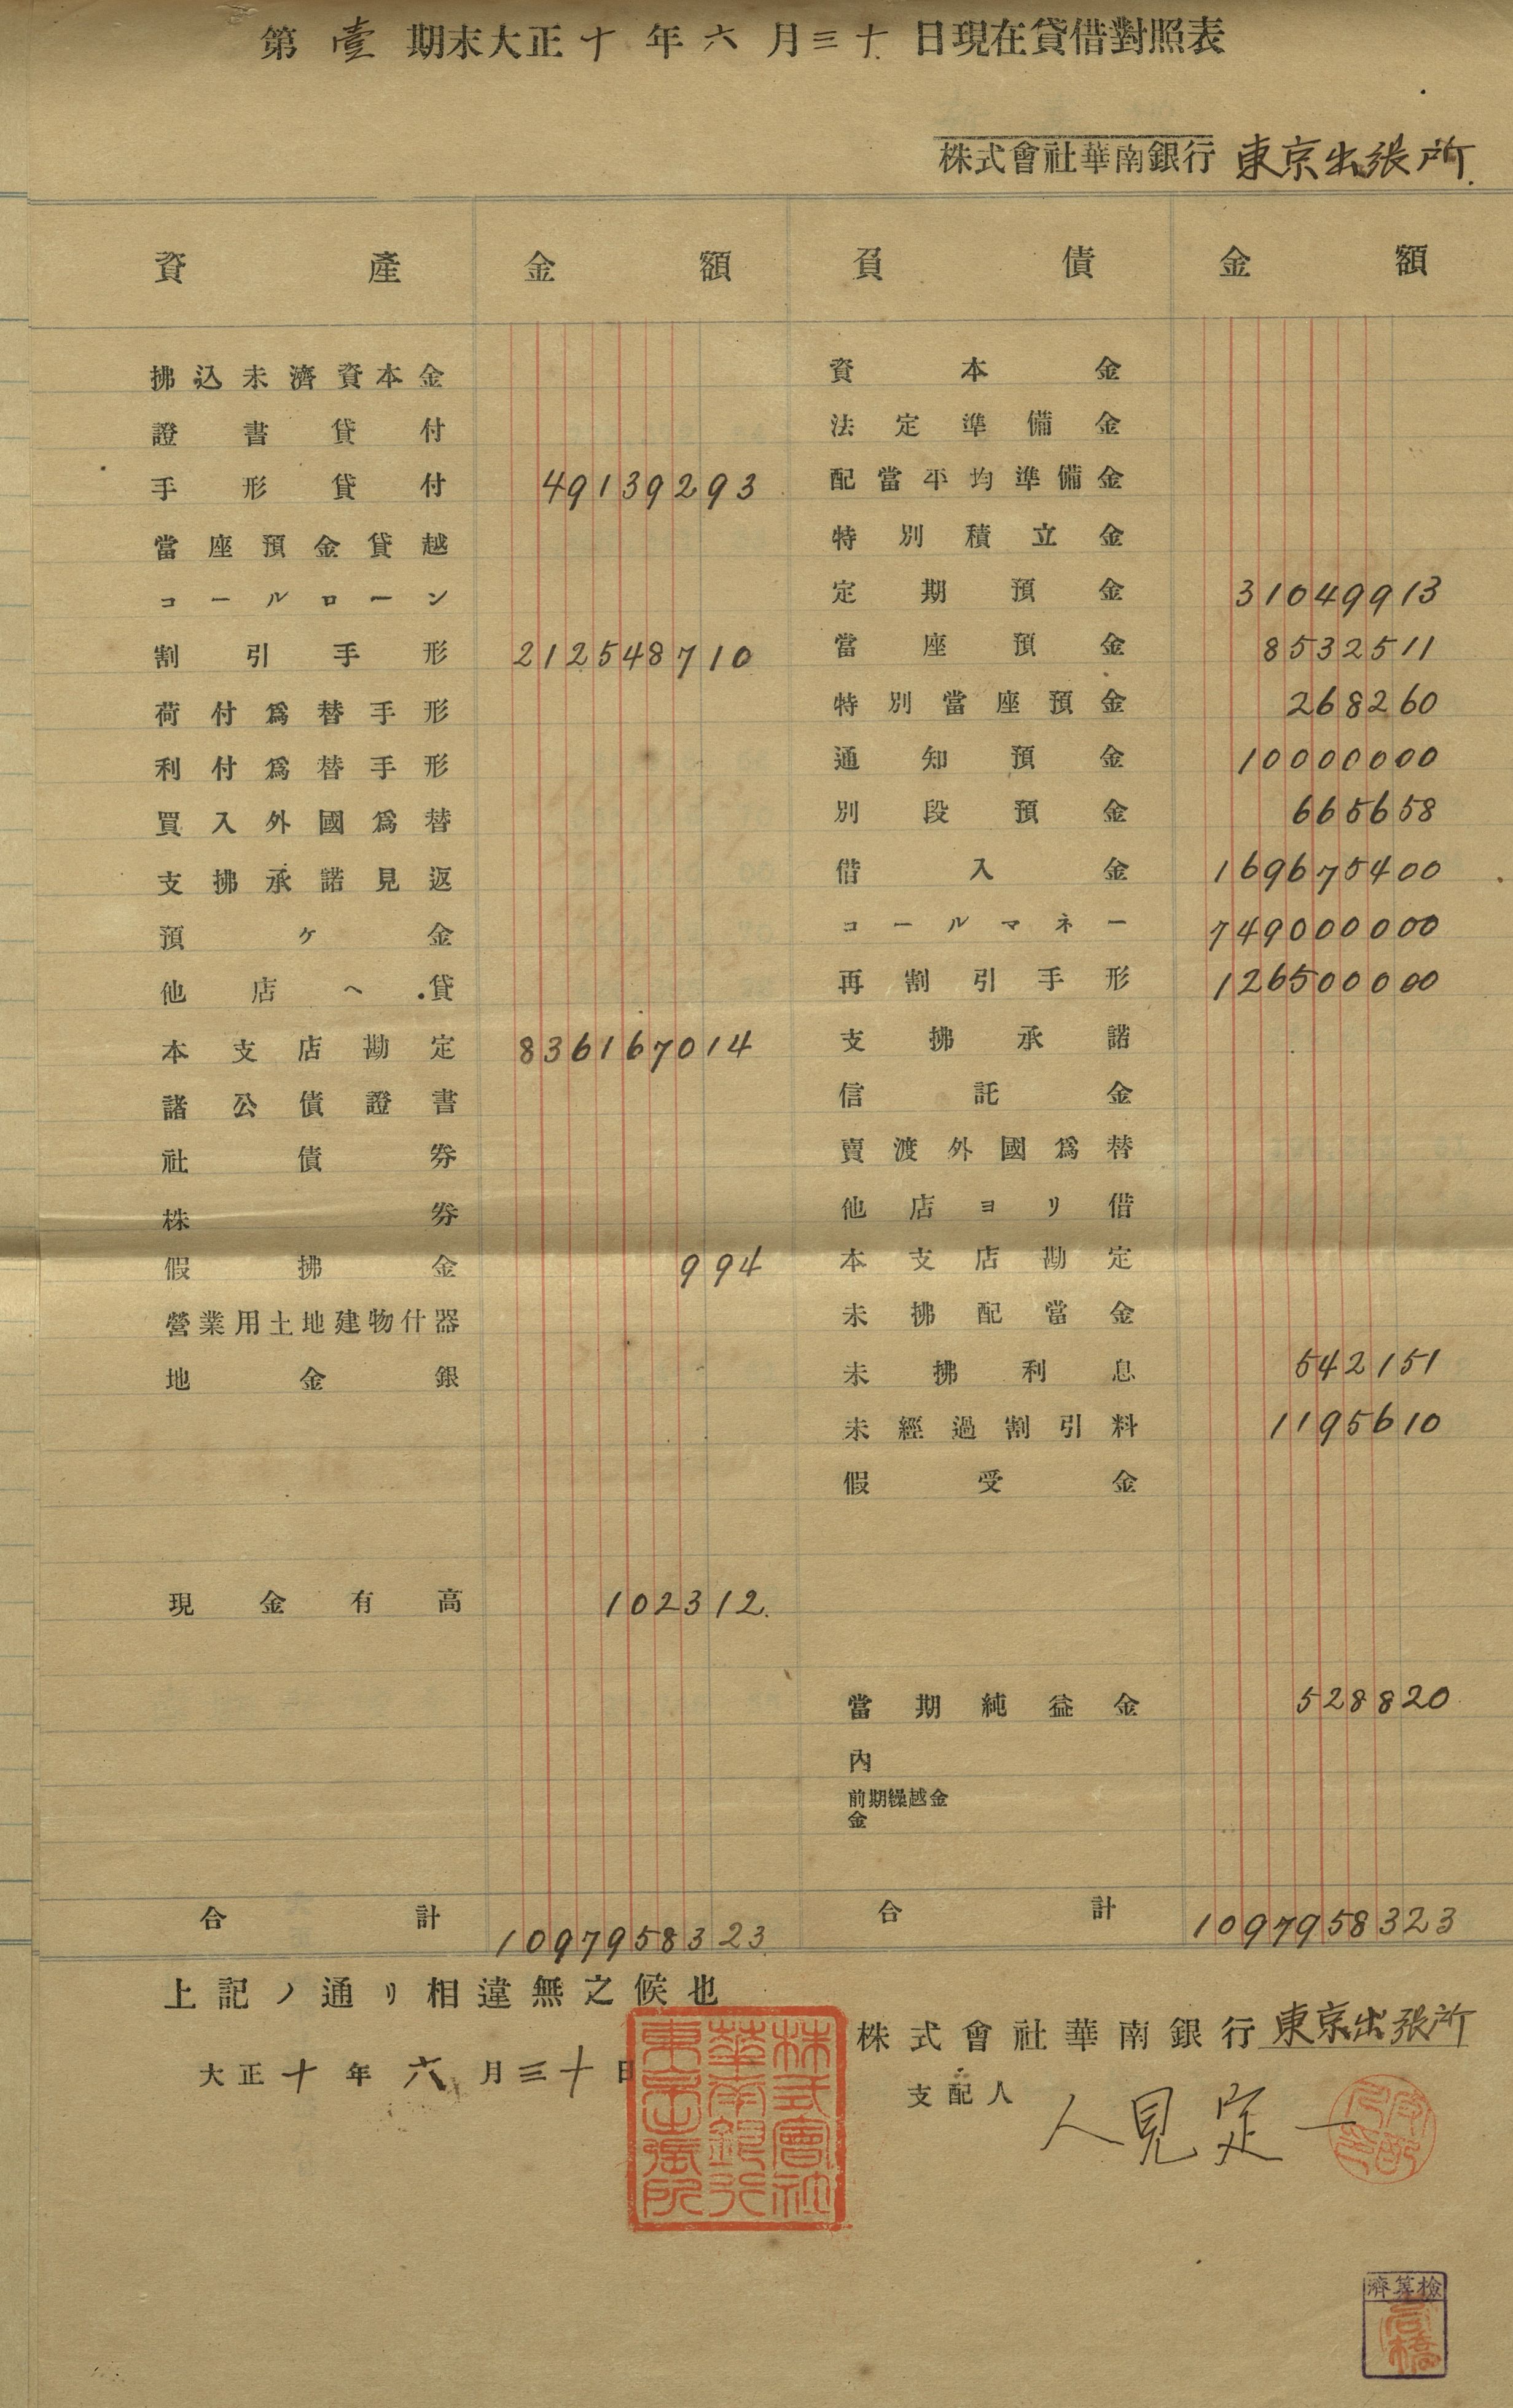 第壹期末大正十年六月三十日現在貸借對照表
株式會社華南銀行 東京出張所
資產 金額 負債 金額
拂込未濟資本金
證書貸付
手形貸付 49139293
當座預金貸越
コールローン
割引手形 212548710
荷付爲替手形
利付爲替手形
買入外國爲替
支拂承諾見返
預ケ金
他店ヘ貸
本支店勘定 836167014
諸公債證書
社債券
株券
假拂金 994
營業用土地建物什器
地金銀
現金有高 102312
合計 1097958323
資本金
法定準備金
配當平均準備金
特別積立金
定期預金 31049913
當座預金 8532511
特別當座預金 268260
通知預金 10000000
別段預金 665658
借入金 169675400
コールマネー 749000000
再割引手形 126500000
支拂承諾
信託金
賣渡外國爲替
他店ヨリ借
本支店勘定
未拂配當金
未拂利息 542151
未經過割引料 1195610
假受金
當期純益金 528820
內
前期繰越金
金
合計 1097958323
上記ノ通リ相違無之候也
大正十年六月三十日
株式會社華南銀行東京出張所
支配人 人見定一
株式會社
華南銀行
東京出張所
檢算濟
高橋